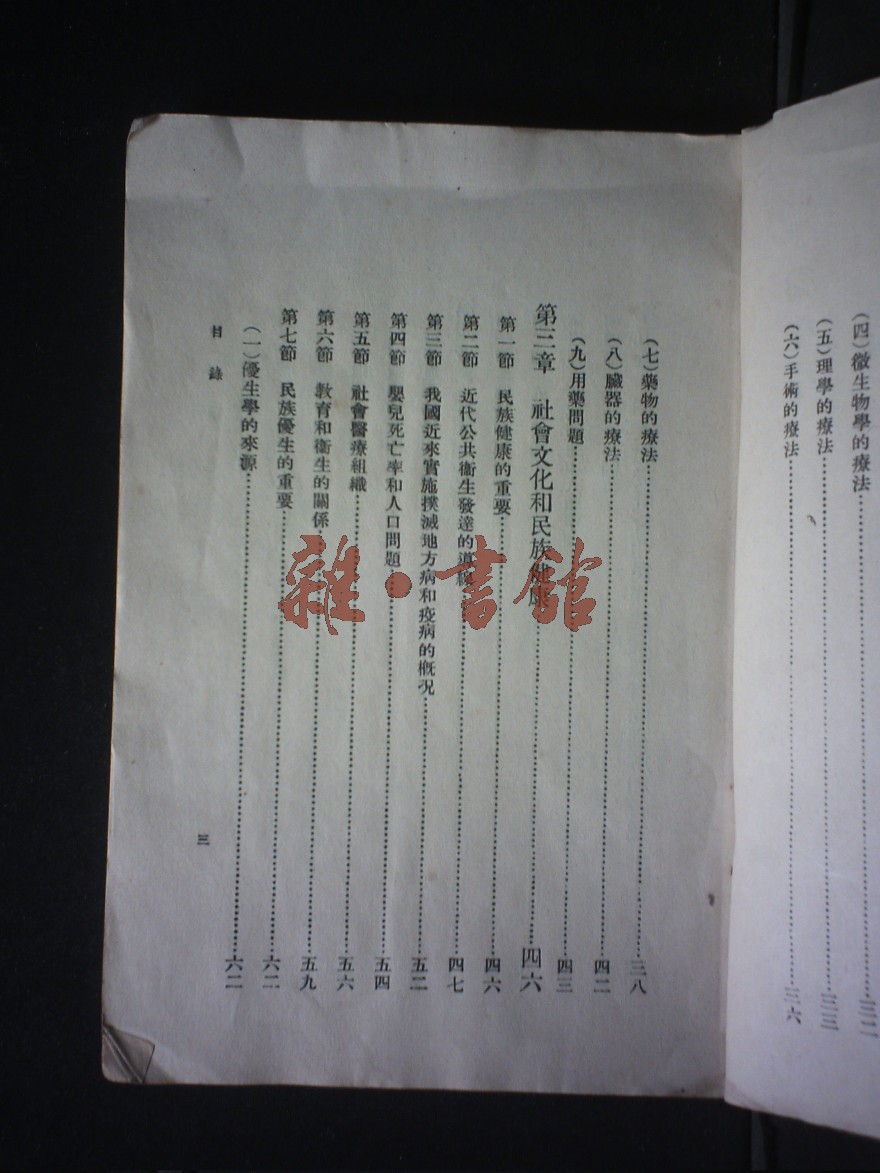 (四)微生物學的療法……三二
(五)理學的療法……三三
(六)手術的療法……三六
(七)藥物的療法……三八
(八)臟器的療法……四二
(九)用藥問題……四三
第三章 社會文化和民族健康……四六
第一節 民族健康的重要……四六
第二節 近代公共衞生發達的導線……四七
第三節 我國近來實施撲滅地方病和疫病的槪況……五二
第四節 嬰兒死亡率和人口問題……五四
第五節 社會醫療組織……五六
第六節 教育和衞生的關係……五九
第七節 民族優生的重要……六二
(一)優生學的來源……六二
目錄
三
雜·書館